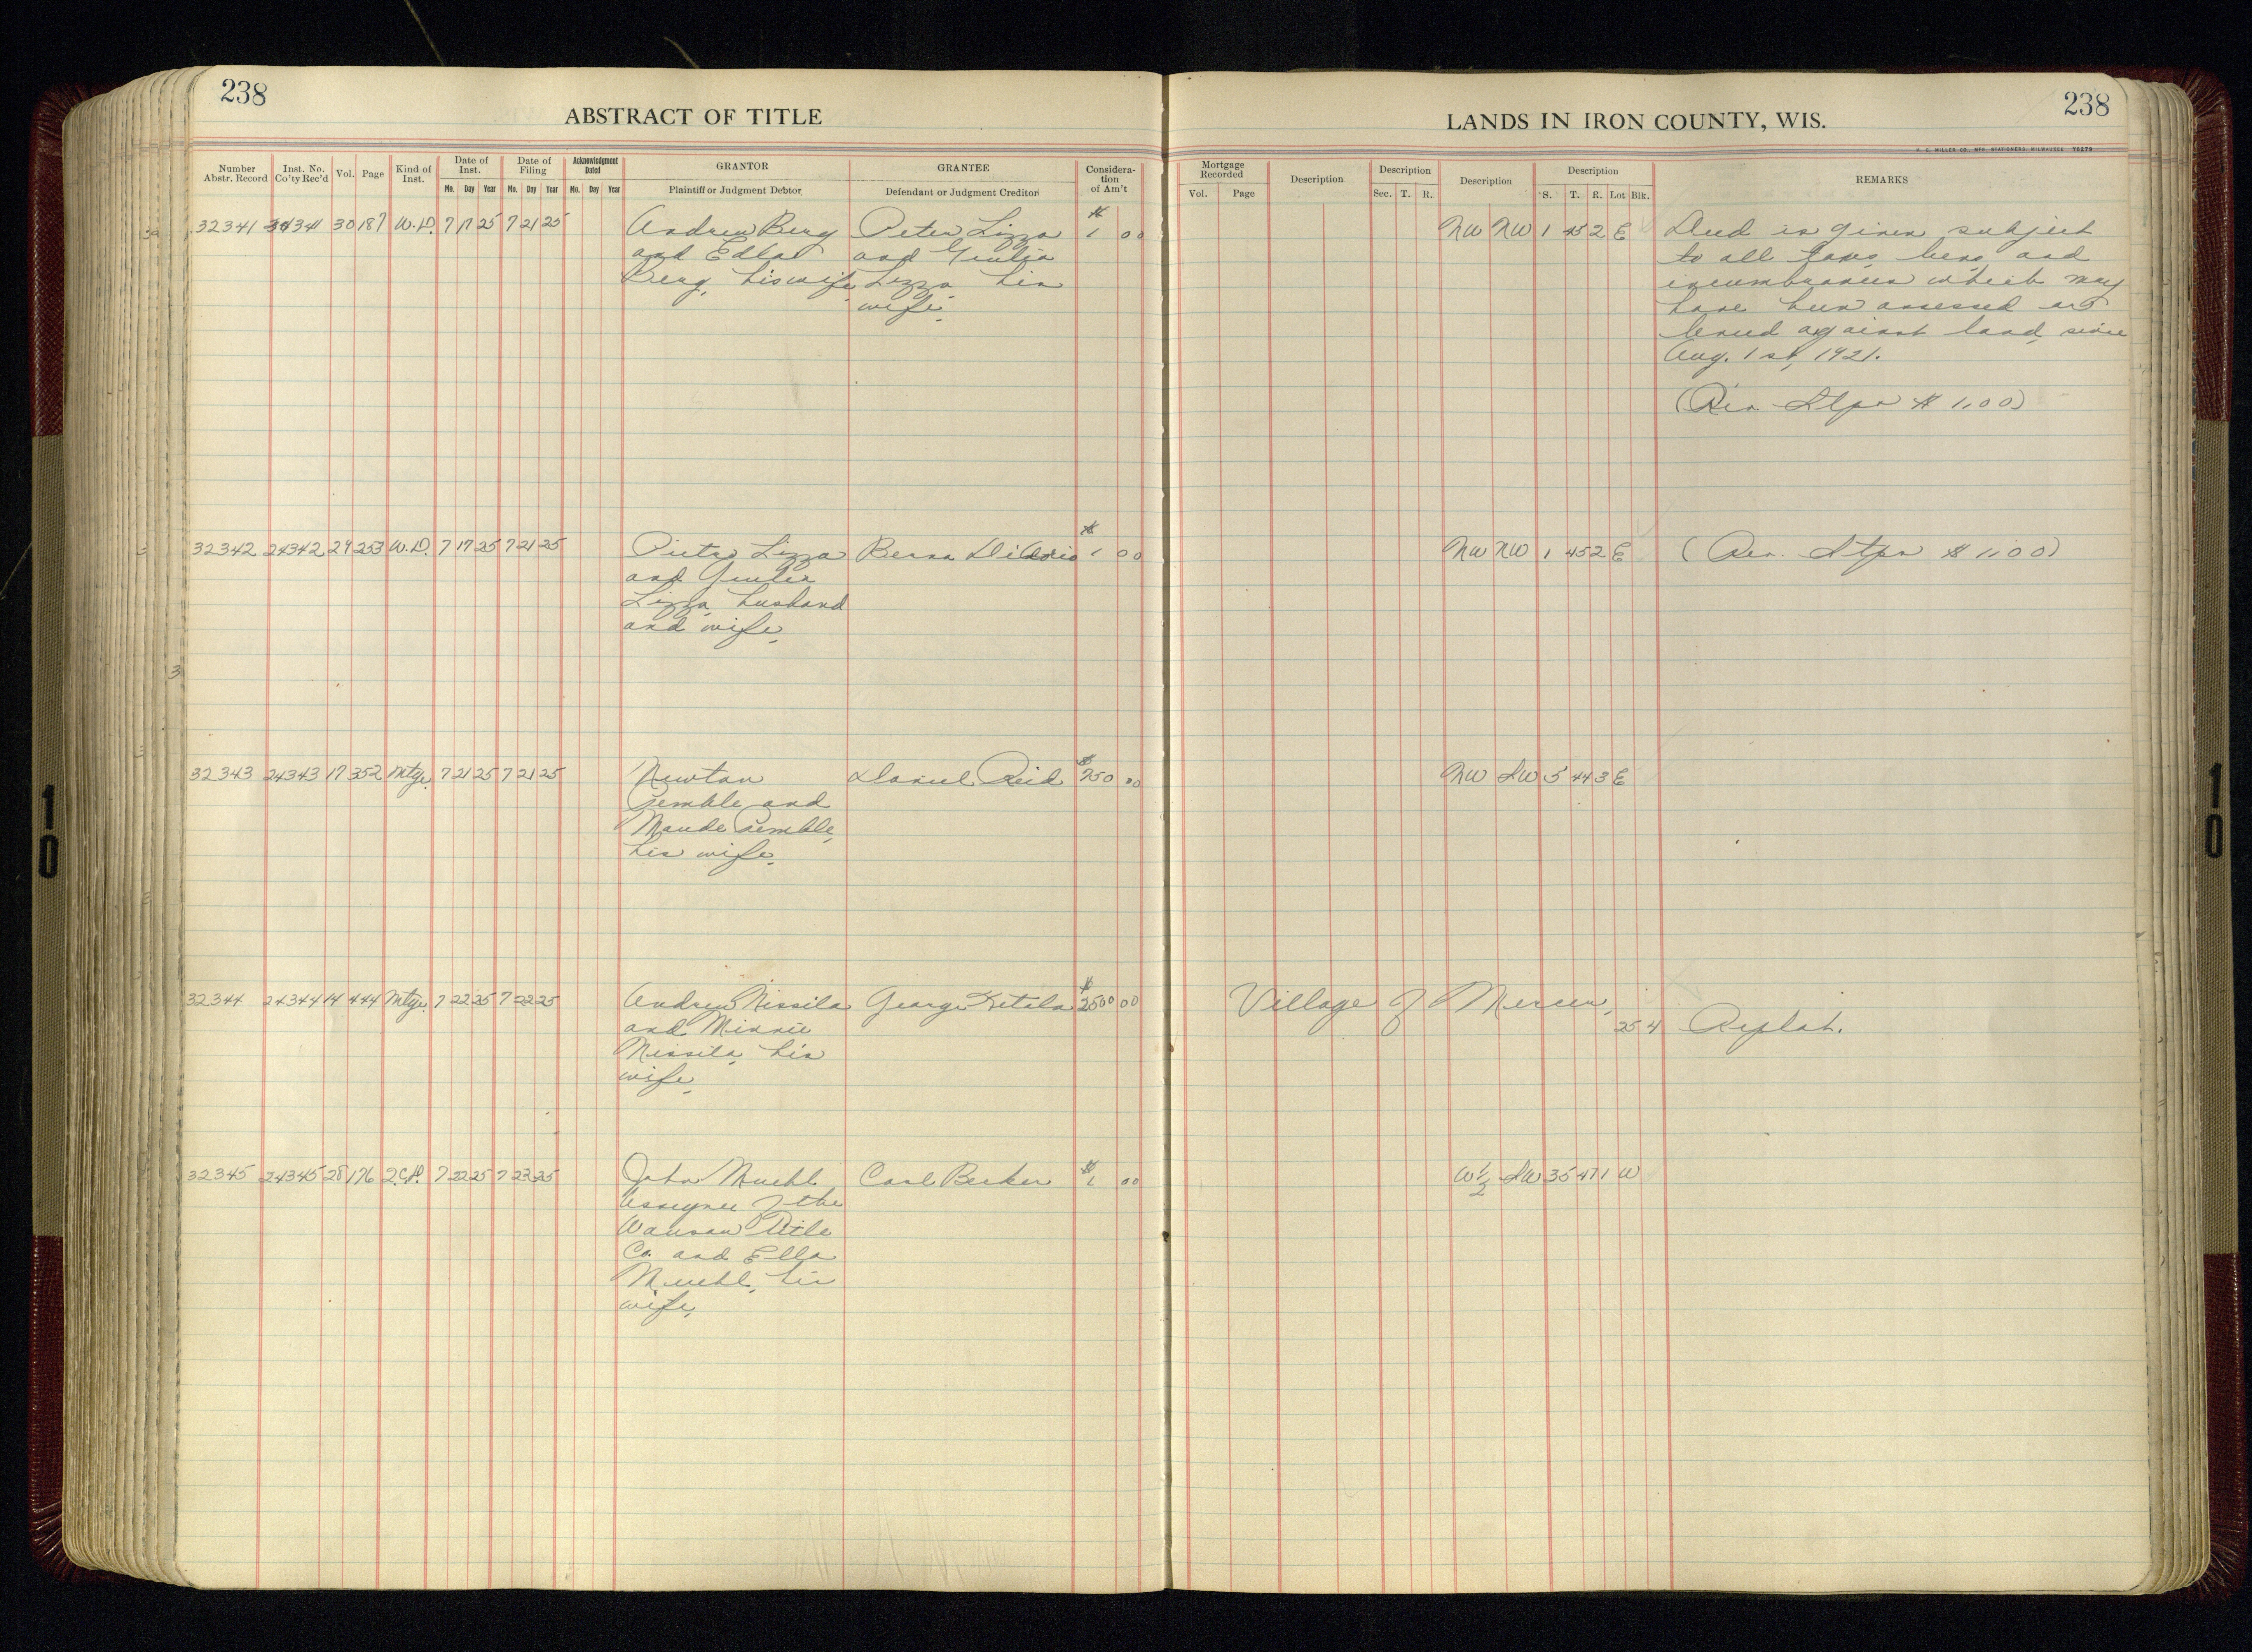 238
ABSTRACT OF TITLE
LANDS IN IRON COUNTY, WIS.
238
H. C. MILLER CO., MFG. STATIONERS, MILWAUKEE 76279
Number Abstr. Record
Inst. No. Co'ty Rec'd
Vol.
Page
Kind of Inst.
Date of Inst.
Mo. Day Year
Date of Filing
Mo. Day Year
Acknowledgment Dated
Mo. Day Year
GRANTOR
Plaintiff or Judgment Debtor
GRANTEE
Defendant or Judgment Creditor
Considera-
tion
of Am't
Mortgage Recorded
Vol. Page
Description
Description
Sec. T. R.
Description
Description
S. T. R. Lot Blk.
REMARKS
32341 24341 30 187 W.D. 7 17 25 7 21 25 Andrew Berg Peter Lizza $1 00 NW NW 1 45 2 E Deed is given subject
and Edla and Giulia to all taxes liens and
Berg, his wife, Lizza his incumbrances which may
wife. have been assessed or
levied against land since
Aug. 1st, 1921.
(Rev. Stps $1.00)
32342 24342 29 253 W.D. 7 17 25 7 21 25 Pietro Lizza $1 00 NW NW 1 45 2 E (Rev. Stps $1.00)
and Giulia
Lizza, husband
and wife.
32343 24343 17 352 Mtge. 7 21 25 7 21 25 Newton Daniel Reid $250 00 NW SW 5 44 3 E
Pemble and
Maude Pemble,
his wife.
32344 24344 14 444 Mtge. 7 22 25 7 22 25 Andrew Nissila George Ketola $2500 00 Village of Mercer,
and Minnie 25 4 Replat.
Nissila, his
wife.
32345 24345 28 176 Q.C.D. 7 22 25 7 23 25 John Muehl Carl Becker $1 00 W½ SW 35 47 1 W
Assignee of the
Wausau Title
Co. and Ella
Muehl, his
wife.
10
10